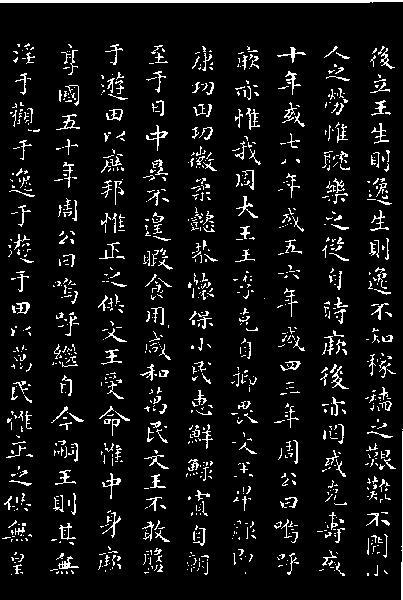 後立王生則逸生則逸不知稼穡之艱難不聞小
人之勞惟耽樂之從自時厥後亦罔或克壽或
十年或七八年或五六年或四三年周公曰嗚呼
厥亦惟我周大王王季克自抑畏文王卑服即
康功田功徽柔懿恭懷保小民惠鮮鰥寡自朝
至于日中昃不遑暇食用咸和萬民文王不敢盤
于遊田以庶邦惟正之供文王受命惟中身厥
享國五十年周公曰嗚呼繼自今嗣王則其無
淫于觀于逸于遊于田以萬民惟正之供無皇